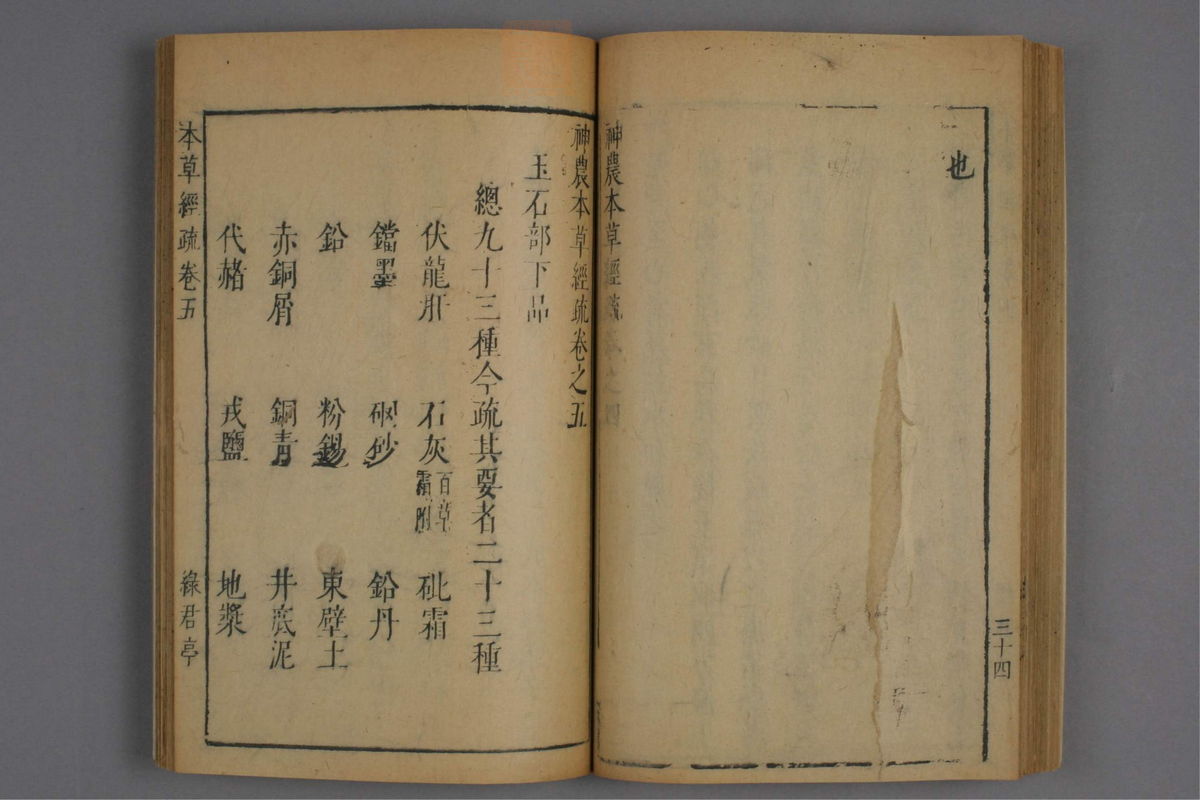 也
神農本草經疏卷之四
三十四
神農本草經疏卷之五
玉石部下品
總九十三種今疏其要者二十三種
伏龍肝 石灰 百草霜附 砒霜
鐺墨 硇砂 鉛丹
鉛 粉錫 東壁土
赤銅屑 銅青 井底泥
代赭 戎鹽 地漿
本草經疏卷五
綠君亭